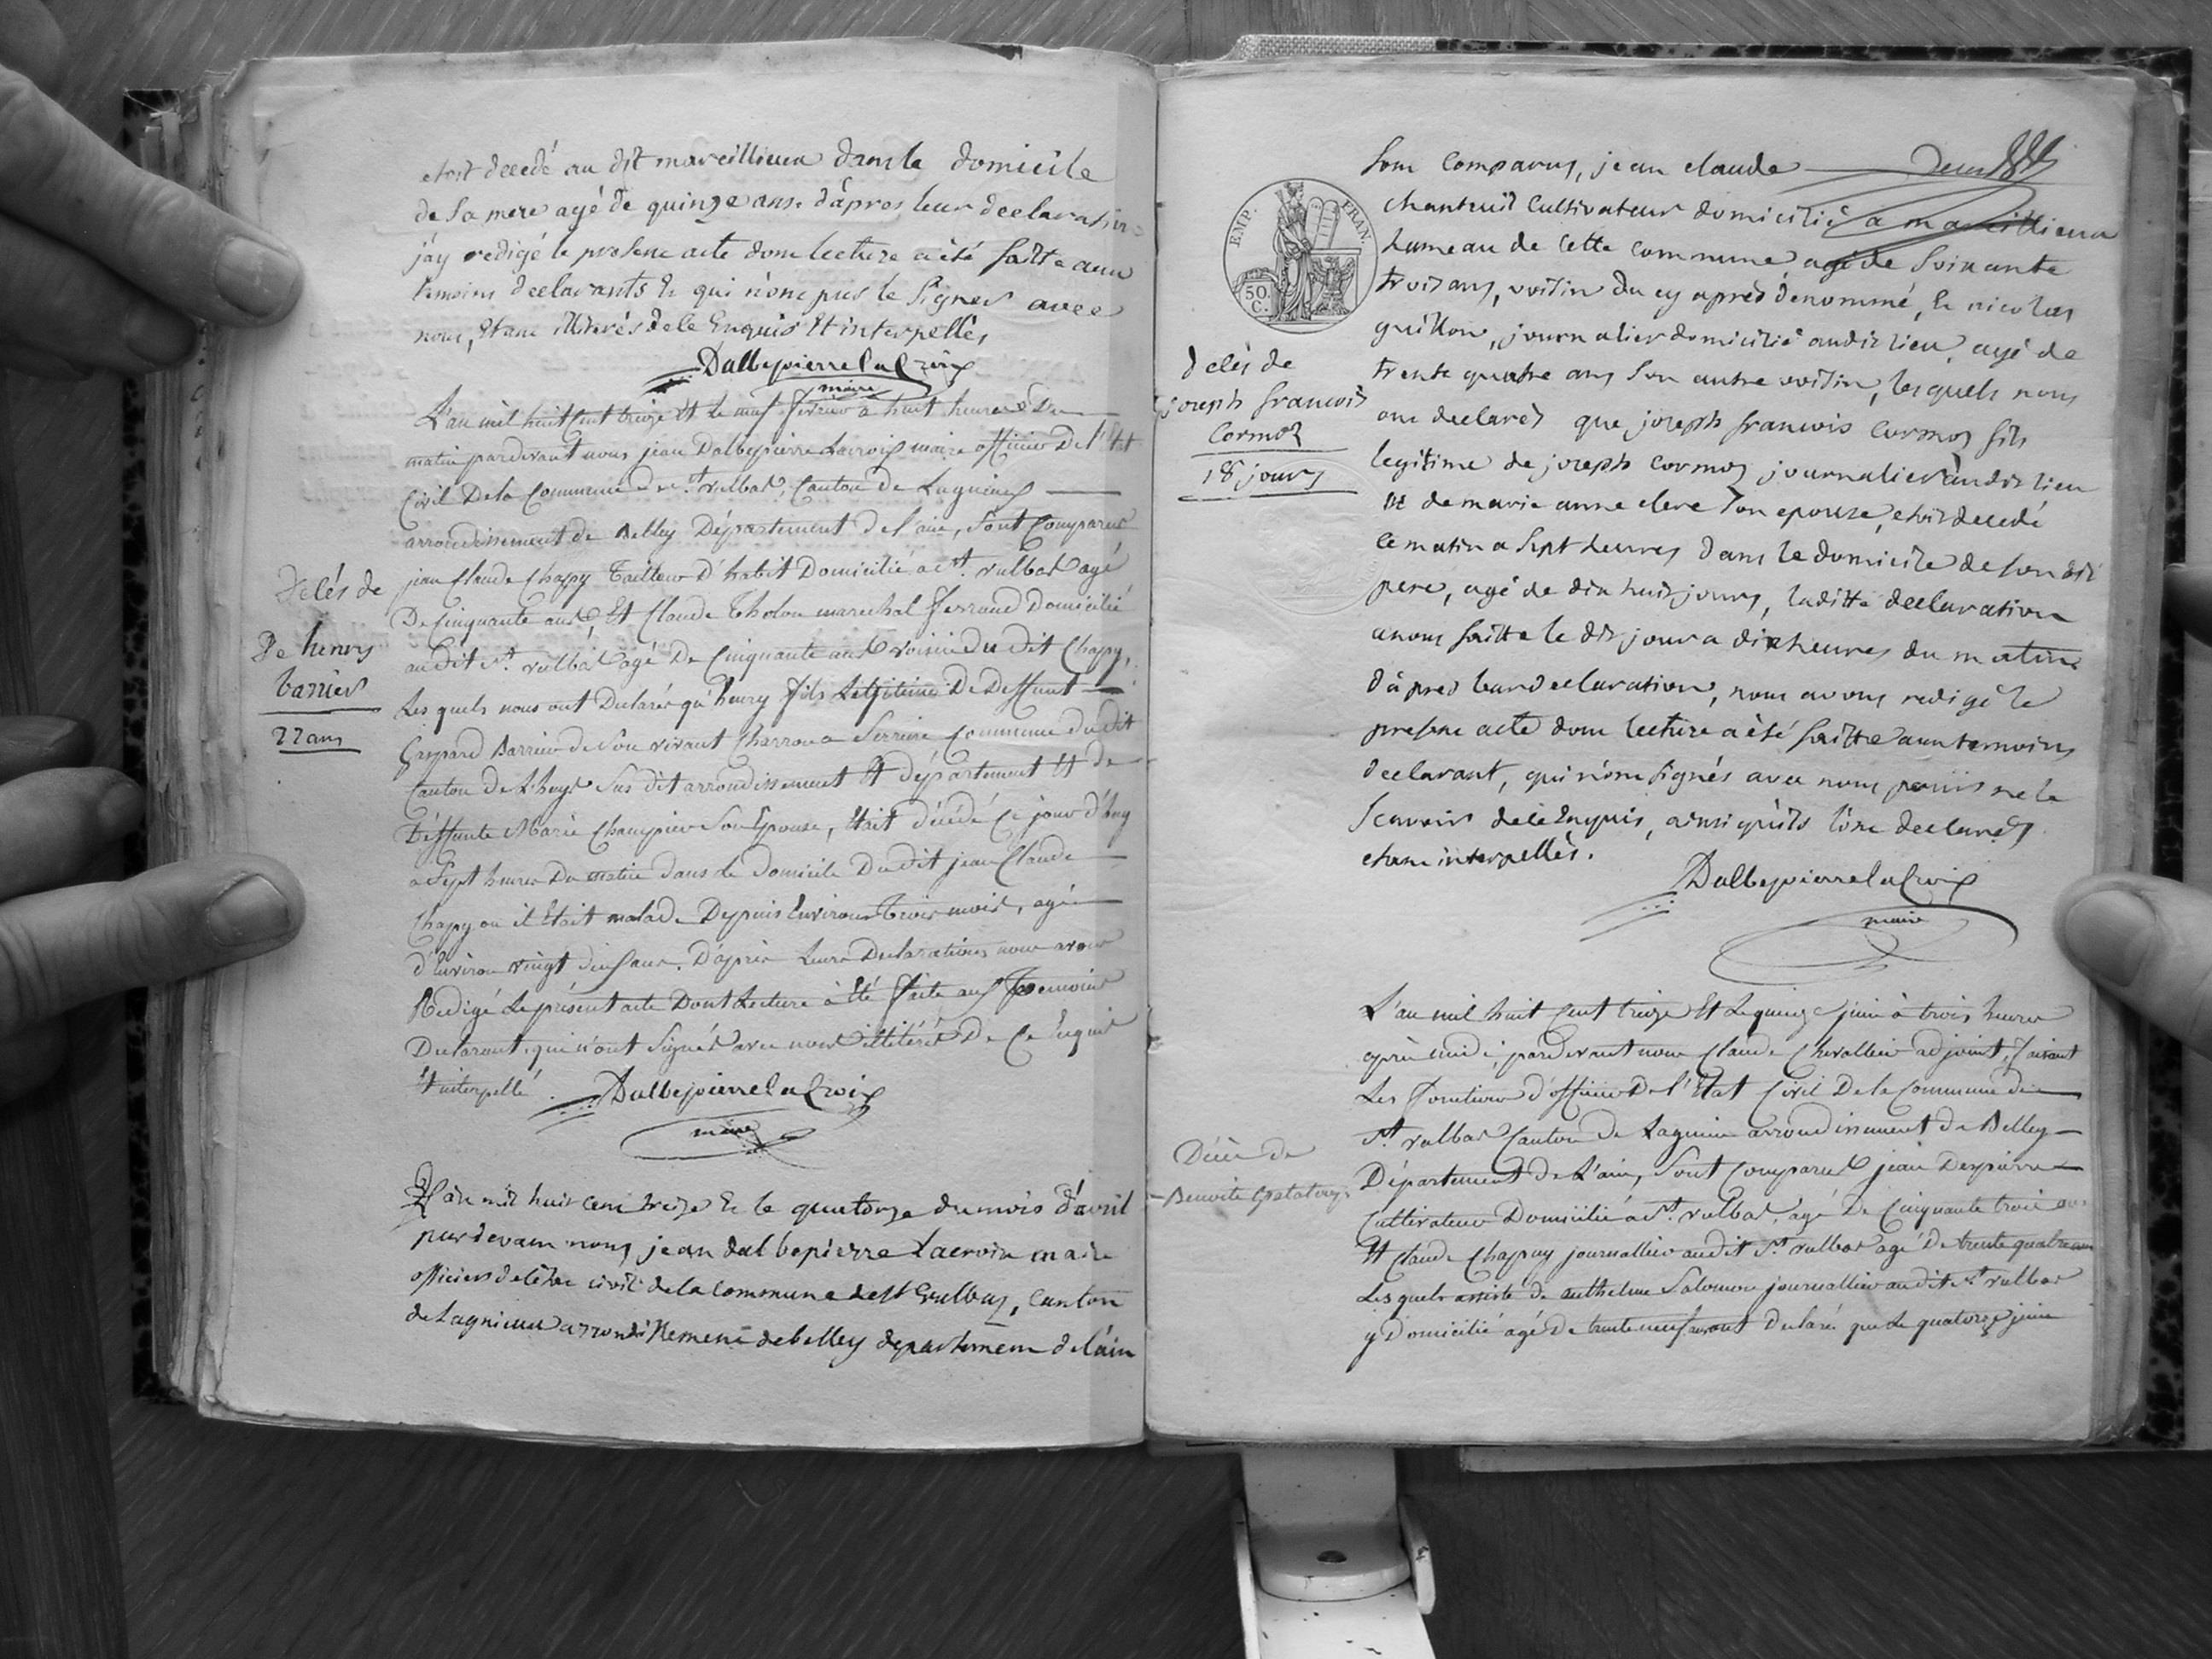 etoit decedé au dit marcillieux dans le domicile
de sa mere agé de quinze ans. d'âpres leur declaration
j'ay redigé le present acte dont lecture a été faitte aux
temoins declarants & qui n'ont pus le signer avec
nous, Etant illiterés de ce Enquis Et interpellés
Dalbepierre Lacroix
maire
L'an mil huit Cent treize Et le neuf fevrier a huit heures Du
matin pardevant nous jean Dalbepierre Lacroix maire officier De l'Etat
Civil De la Commune de St. vulbas, Canton de Lagnieux
arrondissement de Belley Département de l'ain, sont Comparus
jean Claude Chapy tailleur D'habit Domicilié a St. vulbas agé
De Cinquante ans, Et Claude tholon marechal ferrand Domicilié
audit St. vulbas agé De Cinquante ans voisin du dit Chapy,
Les quels nous ont Declarés qu'henry fils Letgitime De Deffunt
Gaspard Barrier de son vivant Charron a Serriere Commune du dit
Canton de L'huys sus dit arrondissement Et département Et de
Déffunte Marie Champier son Epouse, était décédé Ce jour d'huy
a sept heures Du matin dans le domicile Du dit jean Claude
Chapy ou il était malade Depuis Environ trois mois, agé
d'Environ vingt deux ans. D'après leurs Declarations nous avons
Redigé Le présent acte Dont Lecture à été faite aux temoins
Declarant, qui n'ont Signés avec nous illitérés De Ce Enquis
Et interpellé.
Dalbepierre Lacroix
maire
Decés de
De henry
barrier
22 ans
L'an mil huit cent treize & le quatorze du mois d'avril
pardevant nous jean dalbepierre Lacroix maire
officier de l'état civil de la commune de St Vulbas, canton
de Lagnieux arrondissement de belley departement de l'ain
sont comparus, jean claude
chanteuil cultivateur domicilié a marcillieux
hameau de cette commune agé de soixante
trois ans, voisin du cy aprés dénommé, & nicolas
guillon, journalier domicilié audit lieu, agé de
trente quatre ans son autre voisin, lesquels nous
ont declarés que joseph francois cormoz fils
legitime de joseph cormoz journalier audit lieu
Et de marie anne clere son epouse, etoit decedé
ce matin a sept heures dans le domicile de son dit
pere, agé de dix huit jours, laditte declaration
a nous faitte le dit jour a dix heures du matin
d'âpres leur declaration, nous avons redigé le
present acte dont lecture a été faitte aux temoins
declarant, qui n'ont signés avec nous ne le
scavoir de ce Enquis, ainsi qu'ils l'ont declarés
etant interpellés.
Dalbepierre Lacroix
maire
EMP. FRAN.
50. C.
decés de
joseph francois
Cormoz
18 jours
L'an mil huit Cent treize Et Le quinze juin à trois heures
après midi, pardevant nous Claude Chevallier adjoint, faisant
Les fonctions d'officier De l'Etat Civil De la Commune de
St. vulbas Canton De Lagnieu arrondissement De Belley
Département De L'ain, sont Comparus jean Despierre
Cultivateur Domicilié a St. vulbas, agé De Cinquante trois ans
Et Claude Chapuy journallier audit St. vulbas agé De trente quatre ans
Les quels assisté de anthelme Salomon journallier audit St. vulbas
y Domicilié agé De trente neuf ans ont Declaré que Le quatorze juin
Décès de
Benoite